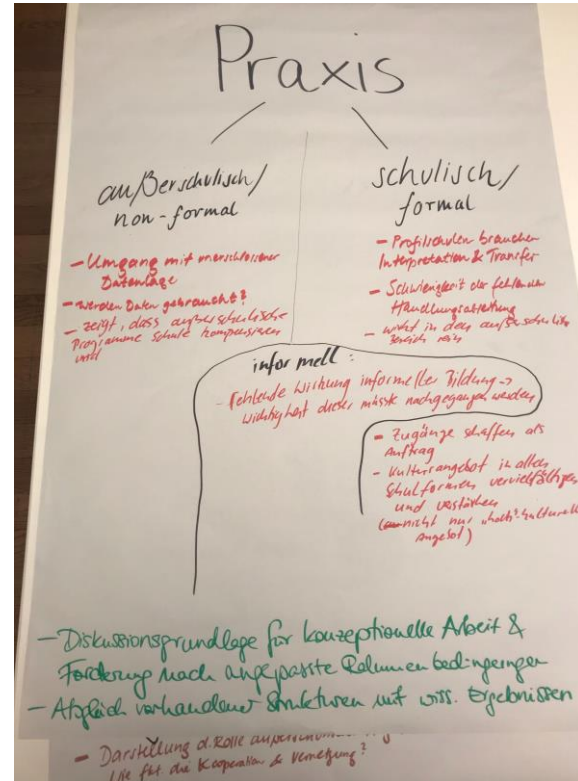 Praxis
außerschulisch/
non-formal
- Umgang mit unerschlossener
Datenlage
- werden Daten gebraucht?
- zeigt, dass außerschulische
Programme Schule kompensieren
schulisch/
formal
- Profilschulen brauchen
Interpretation & Transfer
- Schwierigkeit der fehlenden
Handlungsableitung
- wirkt in den außerschulischen
Bereich rein
informell:
- Fehlende Wirkung informeller Bildung ->
Wichtigkeit dieser müsste nachgegangen werden
- Zugänge schaffen als
Auftrag
- Kulturangebot in allen
Schulformen vervielfältigen
und verstärken
(nicht nur "hoch"-kulturelle
Angebot)
- Diskussionsgrundlage für konzeptionelle Arbeit &
Forderung nach angepasste Rahmenbedingungen
- Abgleich vorhandener Strukturen mit wiss. Ergebnissen
- Darstellung d. Rolle
die Kooperation & Vernetzung?